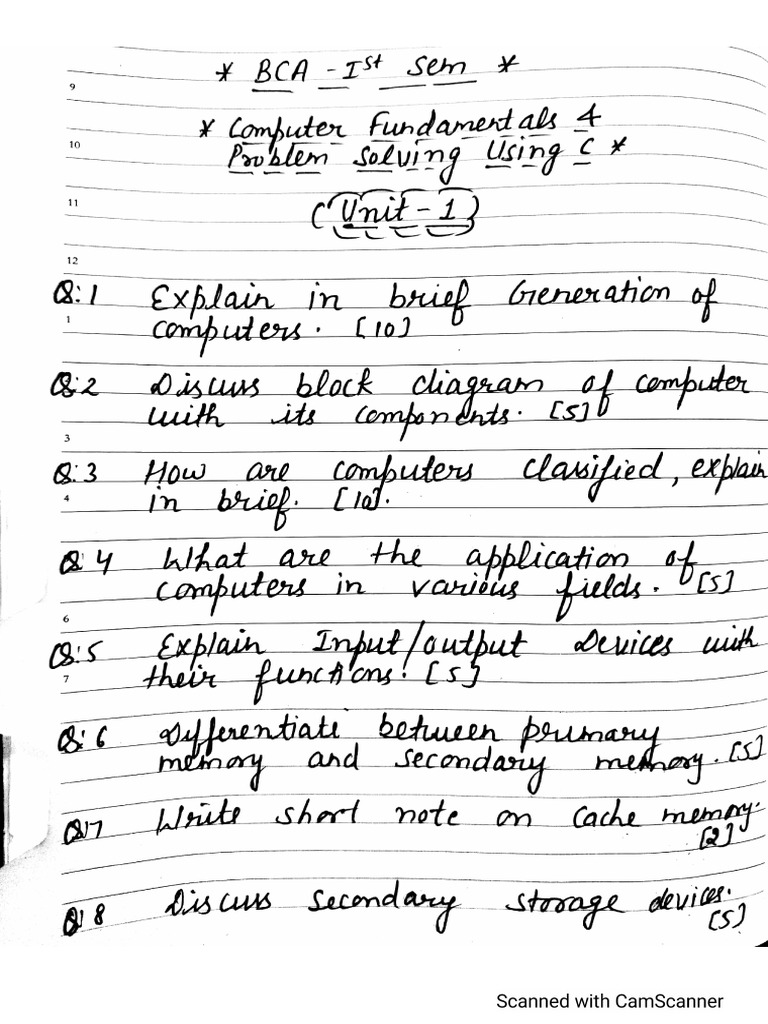 9
* BCA - Ist Sem *
* Computer Fundamentals &
10
Problem Solving Using C *
11
(Unit - 1)
12
Q:1 Explain in brief Generation of
1
computers. [10]
Q:2 Discuss block diagram of computer
with its components. [5]
3
Q:3 How are computers classified, explain
4
in brief. [10].
Q:4 What are the application of
computers in various fields. [5]
6
Q:5 Explain Input/output Devices with
7
their functions. [5]
Q:6 Differentiate between primary
memory and secondary memory. [5]
Q:7 Write short note on Cache memory.
[2]
Q:8 Discuss secondary storage devices.
[5]
Scanned with CamScanner